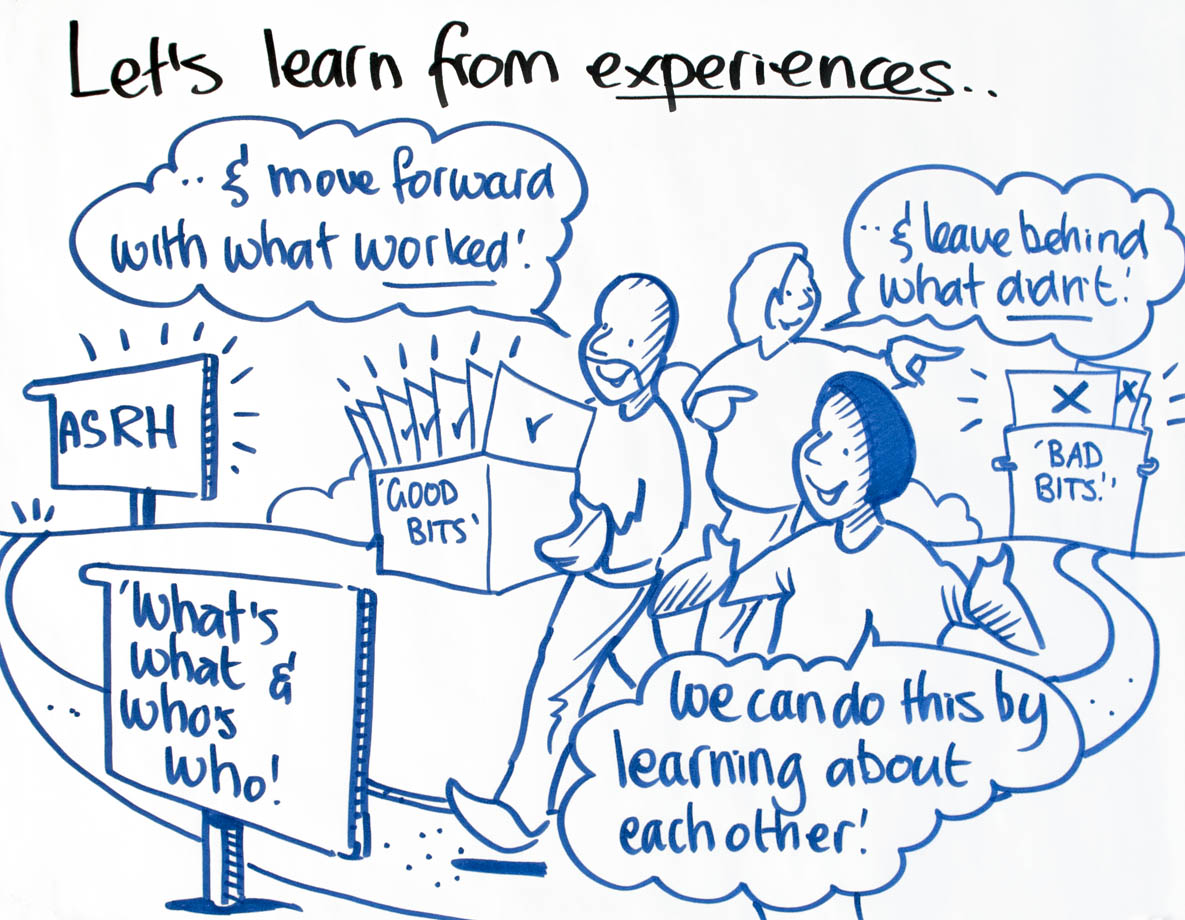 Let's learn from experiences..
..& move forward
with what worked!
..& leave behind
what didn't!
ASRH
'GOOD
BITS'
'BAD
BITS!'
'What's
what &
who's
who!
We can do this by
learning about
each other!